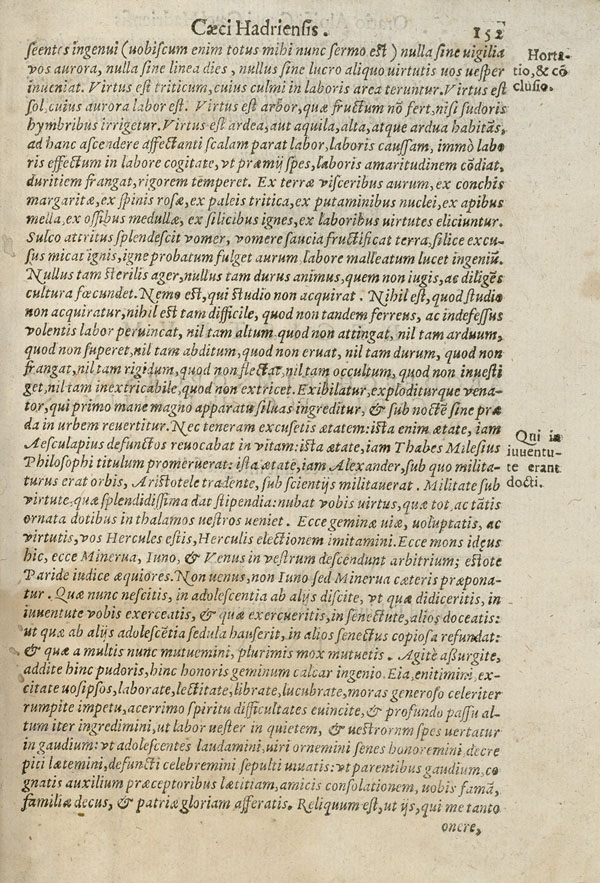 Cæci Hadriensis.
152
scentes ingenui (uobiscum enim totus mihi nunc sermo est) nulla sine uigilia
vos aurora, nulla sine linea dies, nullus sine lucro aliquo uirtutis uos uesper
inueniat. Virtus est triticum, cuius culmi in laboris area teruntur. Virtus est
sol, cuius aurora labor est. Virtus est arbor, quæ fructum nō fert, nisi sudoris
hymbribus irrigetur. Virtus est ardea, aut aquila, alta, atque ardua habitās,
ad hanc ascendere affectanti scalam parat labor, laboris caussam, immò labo
ris effectum in labore cogitate, vt præmij spes, laboris amaritudinem cōdiat,
duritiem frangat, rigorem temperet. Ex terræ visceribus aurum, ex conchis
margaritæ, ex spinis rosæ, ex paleis tritica, ex putaminibus nuclei, ex apibus
mella, ex ossibus medullæ, ex silicibus ignes, ex laboribus uirtutes eliciuntur.
Sulco attritus splendescit vomer, vomere saucia fructificat terra, silice excu-
sus micat ignis, igne probatum fulget aurum, labore malleatum lucet ingeniū.
Nullus tam sterilis ager, nullus tam durus animus, quem non iugis, ac diligēs
cultura fœcundet. Nemo est, qui studio non acquirat. Nihil est, quod studio
non acquiratur, nihil est tam difficile, quod non tandem ferreus, ac indefessus
volentis labor peruincat, nil tam altum quod non attingat, nil tam arduum,
quod non superet, nil tam abditum, quod non eruat, nil tam durum, quod non
frangat, nil tam rigidum, quod non flectat, nil tam occultum, quod non inuesti
get, nil tam inextricabile, quod non extricet. Exibilatur, exploditurque vena-
tor, qui primo mane magno apparatu siluas ingreditur, & sub noctē sine præ
da in urbem reuertitur. Nec teneram excusetis ætatem: ista enim ætate, iam
Aesculapius defunctos reuocabat in vitam: ista ætate, iam Thabes Milesius
Philosophi titulum promeruerat: ista ætate, iam Alexander, sub quo milita-
turus erat orbis, Aristotele tradente, sub scientijs militauerat. Militate sub
virtute, quæ splendidissima dat stipendia: nubat vobis uirtus, quæ tot, ac tātis
ornata dotibus in thalamos uestros ueniet. Ecce geminæ uiæ, uoluptatis, ac
virtutis, vos Hercules estis, Herculis electionem imitamini. Ecce mons idęus
hic, ecce Minerua, Iuno, & Venus in vestrum descendunt arbitrium; estote
Paride iudice æquiores. Non uenus, non Iuno sed Minerua cæteris præpona-
tur. Quæ nunc nescitis, in adolescentia ab alijs discite, vt quæ didiceritis, in
iuuentute vobis exerceatis, & quæ exercueritis, in senectute, alios doceatis:
ut quæ ab alijs adolescētia sedula hauserit, in alios senectus copiosa refundat:
& quæ a multis nunc mutuemini, plurimis mox mutuetis. Agitè assurgite,
addite hinc pudoris, hinc honoris geminum calcar ingenio. Eia, enitimini, ex-
citate uosipsos, laborate, lectitate, librate, lucubrate, moras generoso celeriter
rumpite impetu, acerrimo spiritu difficultates euincite, & profundo passu al-
tum iter ingredimini, ut labor uester in quietem, & uestrorum spes uertatur
in gaudium: vt adolescentes laudamini, uiri ornemini senes honoremini, decre
piti lætemini, defuncti celebremini sepulti uiuatis: vt parentibus gaudium, co
gnatis auxilium præceptoribus lætitiam, amicis consolationem, uobis famā,
familiæ decus, & patriæ gloriam afferatis. Reliquum est, ut ijs, qui me tanto
onere,
Horta-
tio, & cō
clusio.
Qui iā
iuuentu-
te erant
docti.